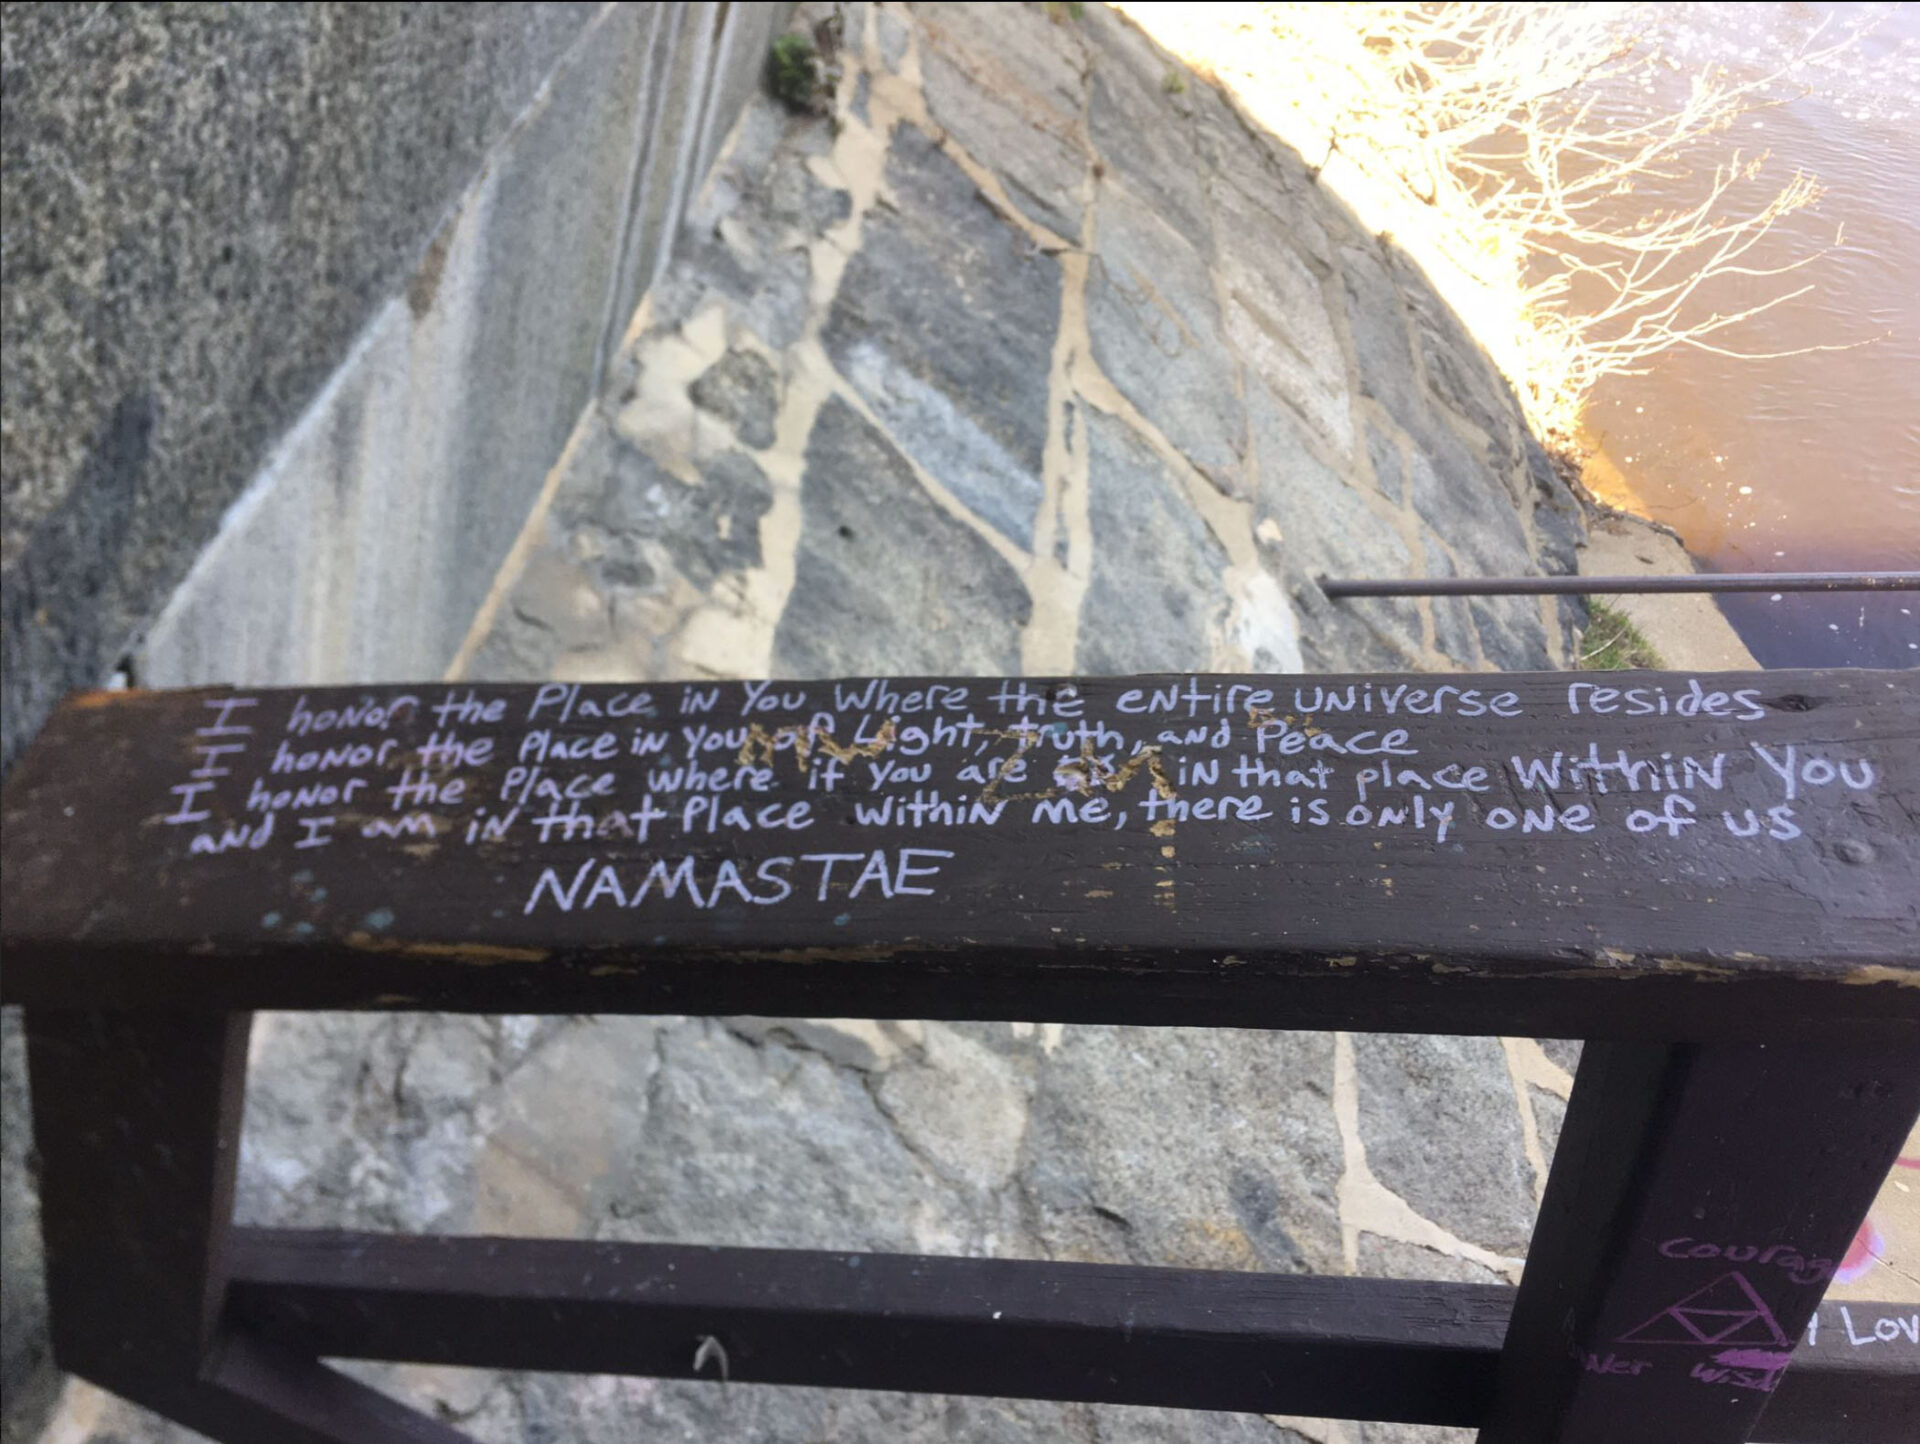 I honor the Place in You Where the entire universe resides
I honor the Place in You of Light, truth, and Peace
I honor the Place where if you are in that place Within You
and I am in that Place within me, there is only one of us
NAMASTAE
Courage
Lov